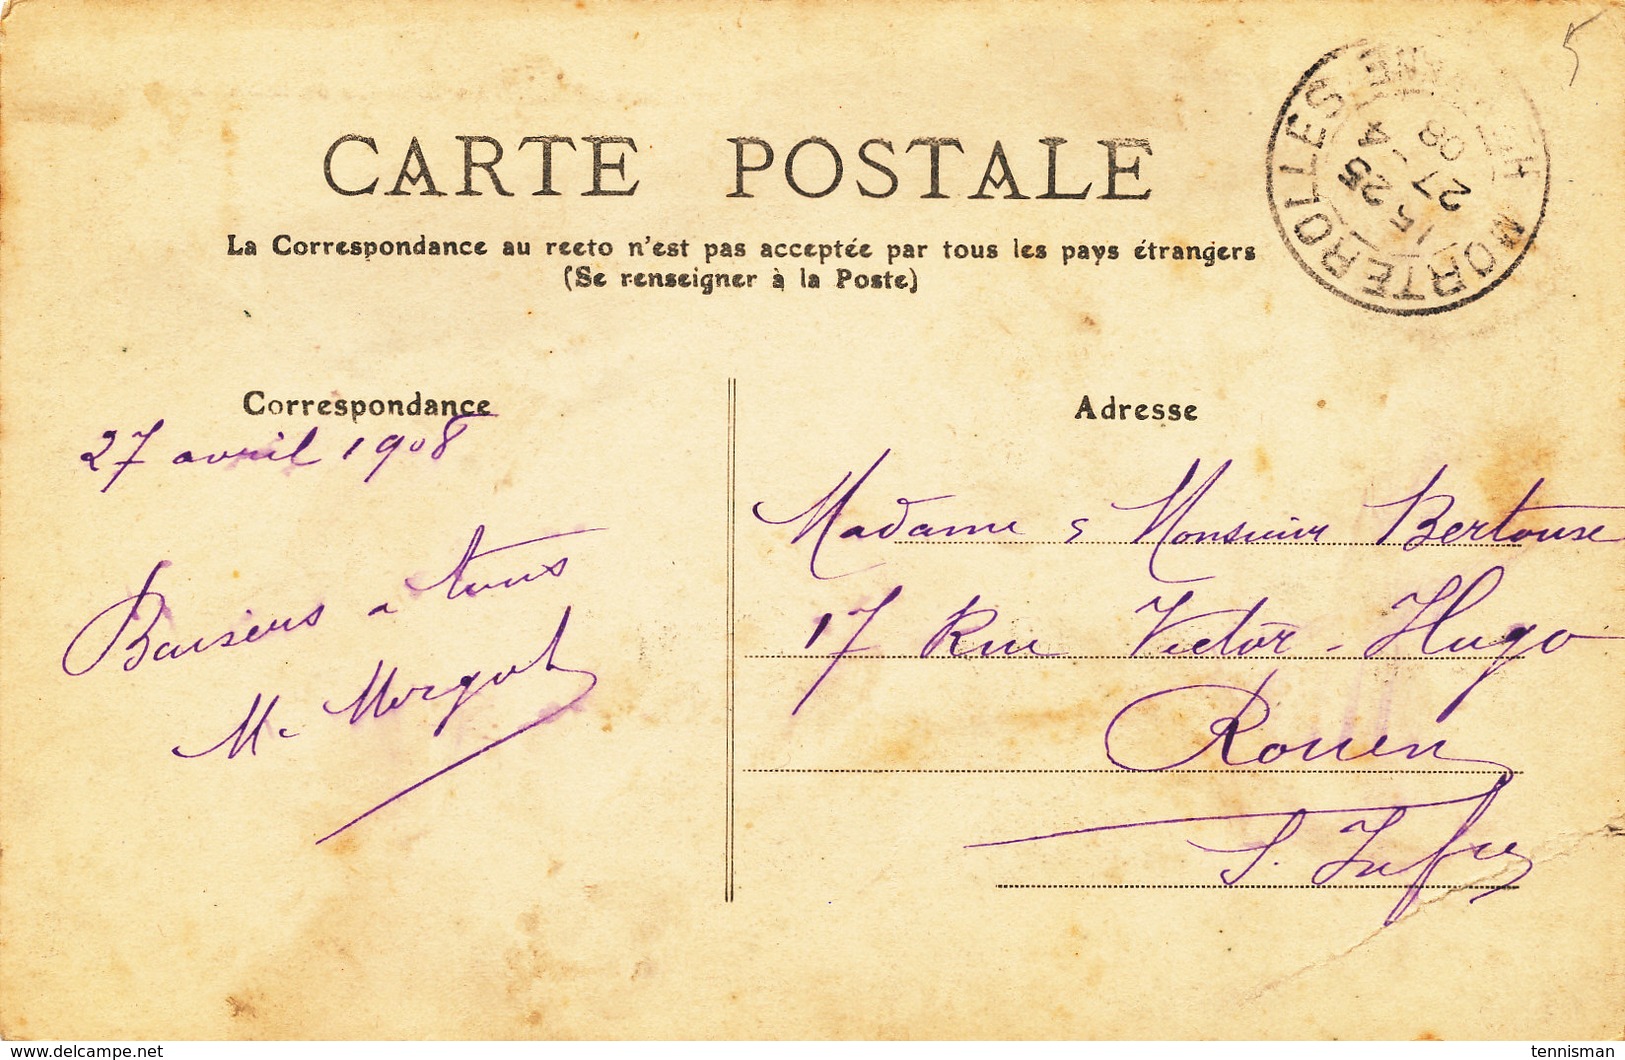 5
CARTE POSTALE
La Correspondance au recto n'est pas acceptée par tous les pays étrangers
(Se renseigner à la Poste)
MORTEROLLES
15 25
27 4
08
Correspondance
27 avril 1908
Baisers a tous
M. Morgat
Adresse
Madame & Monsieur Bertouse
17 Rue Victor-Hugo
Rouen
S. Infre
www.delcampe.net
tennisman